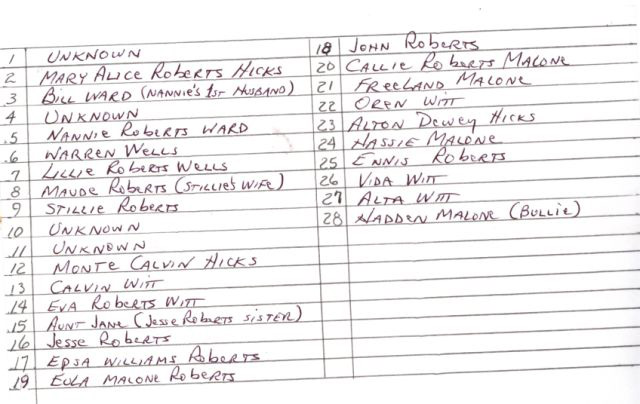 1 UNKNOWN
2 MARY ALICE ROBERTS HICKS
3 BILL WARD (NANNIE'S 1ST HUSBAND)
4 UNKNOWN
5 NANNIE ROBERTS WARD
6 WARREN WELLS
7 LILLIE ROBERTS WELLS
8 MAUDE ROBERTS (STILLIE'S WIFE)
9 STILLIE ROBERTS
10 UNKNOWN
11 UNKNOWN
12 MONTE CALVIN HICKS
13 CALVIN WITT
14 EVA ROBERTS WITT
15 AUNT JANE (JESSE ROBERTS SISTER)
16 JESSE ROBERTS
17 EDSA WILLIAMS ROBERTS
19 EULA MALONE ROBERTS
18 JOHN ROBERTS
20 CALLIE ROBERTS MALONE
21 FREELAND MALONE
22 OREN WITT
23 ALTON DEWEY HICKS
24 HASSIE MALONE
25 ENNIS ROBERTS
26 VIDA WITT
27 ALTA WITT
28 HADDEN MALONE (BULLIE)